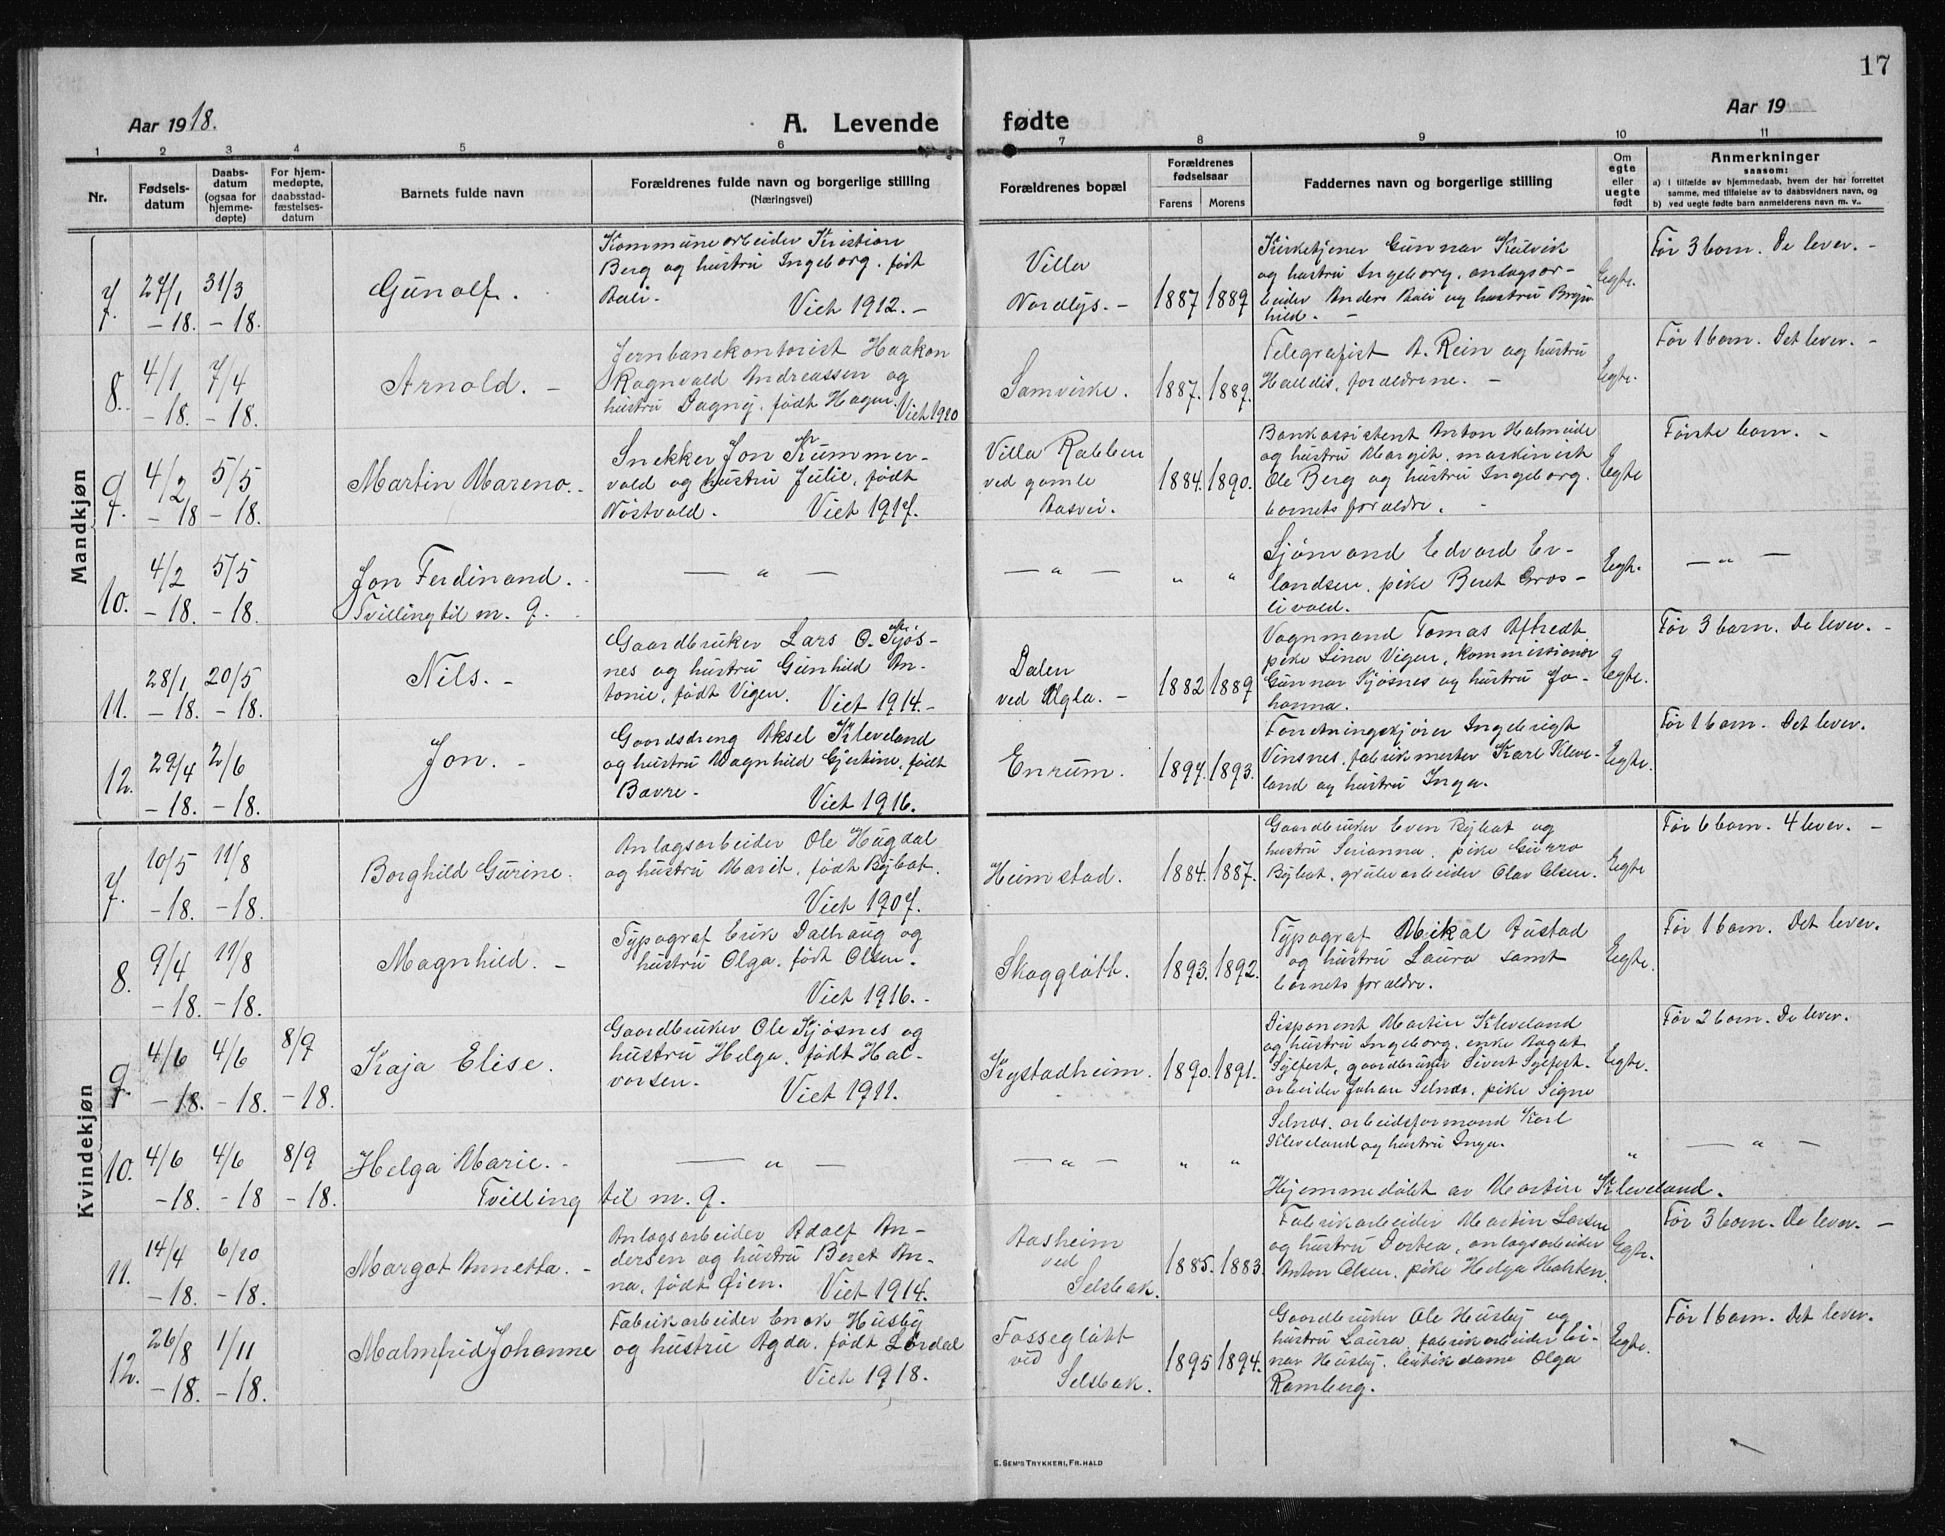 17
Aar 1918.
A. Levende fødte
Aar 19
1 2 3 4 5 6 7 8 9 10 11
Nr.
Fødsels-
datum
Daabs-
datum
(ogsaa for
hjemme-
døpte)
For hjem-
medøpte,
daabsstad-
fæstelses-
datum
Barnets fulde navn
Forældrenes fulde navn og borgerlige stilling
(Næringsvei)
Forældrenes bopæl
Forældrenes
fødselsaar
Farens Morens
Faddernes navn og borgerlige stilling
Om
egte
eller
uegte
født
Anmerkninger
saasom:
a) i tilfælde av hjemmedaab, hvem der har forrettet
samme, med tilføielse av to daabsvidners navn, og
b) ved uegte fødte barn anmelderens navn m. v..
Mandkjøn
7.
24/1
-18.
31/3
-18.
Gunolf.
Kommunearbeider Kristian
Berg og hustru Ingeborg, født
Bali.
Viet 1912. -
Villa
Nordlys. -
1887 1889
Kirketjener Gunnar Kulvik
og hustru Ingeborg, anlagsar-
beider Anders Bali og hustru Bryn-
hild. -
Egte.
Før 3 barn. De lever. -
8.
4/1
-18.
7/4
-18.
Arnold. -
Jernbanekontorist Haakon
Ragnvald Andreassen og
hustru Dagny, født Hagen. Viet 1910
Samvirke.
1887. 1889.
Telegrafist A. Rein og hustru
Halldis, forældrene. -
Egte.
Før 1 barn. Det lever. -
9.
4/2
-18
5/5
-18.
Martin Mareno.
Snekker Jon Kummer-
vold og hustru Julie, født
Nøstvold. Viet 1917.
Villa Rabben
ved gamle
Aasvei.
1884. 1890.
Bankassistent Anton Halmeide
og hustru Margit, maskinist
Ole Berg og hustru Ingeborg.
barnets forældre.
Egte
Første barn. -
10.
4/2
-18.
5/5
-18.
Jon Ferdinand.
Tvilling til m. 9.
— " —
— " —
" "
Sjømand Edvard Er-
landsen, pike Beret Gros-
livold.
Egte.
— " —
11.
28/1
-18.
20/5
-18.
Nils. -
Gaardbruker Lars O. Kjøs-
nes og hustru Gunhild An-
tonie, født Vigen. Viet 1914. -
Dalen
ved Ugla. -
1882 1889
Vognmand Tomas Aftredt,
pike Lina Vigen, kommissionær
Gunnar Kjøsnes og hustru Jo-
hanna.
Egte.
Før 3 barn. De lever. -
12.
29/4
-18.
2/6
-18.
Jon. -
Gaardsdreng Aksel Kleveland
og hustru Magnhild Gjertine, født
Bavre. - Viet 1916.
Enrum.
1894. 1893.
Forretningskjører Ingebrigt
Vinsnes, fabrikmester Karl Kleve-
land og hustru Inga.
Egte.
Før 1 barn. Det lever.
Kvindekjøn
7.
10/5
-18.
11/8
-18.
Borghild Gurine.
Anlagsarbeider Ole Hugdal
og hustru Marit, født Bybat.
Viet 1907.
Heimstad.
1884. 1887.
Gaardbruker Even Bybat og
hustru Serianna, pike Gurro
Bybat, grubearbeider Olav Olsen.
Egte
Før 6 barn. 4 lever. -
8.
9/4
-18.
11/8
-18.
Magnhild. -
Typograf Erik Dalhaug og
hustru Olga, født Olsen.
Viet 1916. -
Skoggløtt.
1893. 1892.
Typograf Mikal Austad
og hustru Laura samt
barnets forældre.
Egte.
Før 1 barn. Det lever.
9.
4/6
-18.
4/6
-18.
8/9
-18.
Kaja Elise.
Gaardbruker Ole Kjøsnes og
hustru Helga, født Hal-
vorsen. Viet 1911.
Kystadheim.
1890. 1891.
Disponent Martin Kleveland
og hustru Ingeborg, enke Aagat
Sylfest, gaardbruker Sivert Sylfest,
arbeider Johan Selnæs, pike Signe
Selnæs, arbeidsformand Karl
Kleveland og hustru Inga.
Egte.
Før 2 barn. De lever.
10.
4/6
-18.
4/6
-18
8/9
-18.
Helga Marie. -
Tvilling til m. 9.
— " —
— " —
" "
"
— " —
Hjemmedøbt av Martin Kleveland.
11.
14/4
-18.
6/10
-18.
Margot Annetta. -
Anlagsarbeider Adolf An-
dersen og hustru Beret An-
na, født Øien. Viet 1914.
Aasheim
ved
Selsbak.
1885. 1883.
Fabrikarbeider Martin Larsen
og hustru Dortea, anlagsarbeider
Anton Olsen, pike Helga Halsten.
Egte.
Før 3 barn. De lever. -
12.
26/8
-18.
1/11
-18.
Malmfrid Johanne
Fabrikarbeider Enok Husby
og hustru Agda, født Lørdal
Viet 1918.
Fossegløtt
ved
Selsbak.
1895 1894.
Gaardbruker Ole Husby og
hustru Laura, fabrikarbeider Ei-
nar Husby, butikdame Olga
Ramberg.
Egte.
Før 1 barn. Det lever.
E. SEM'S TRYKKERI, FR. HALD